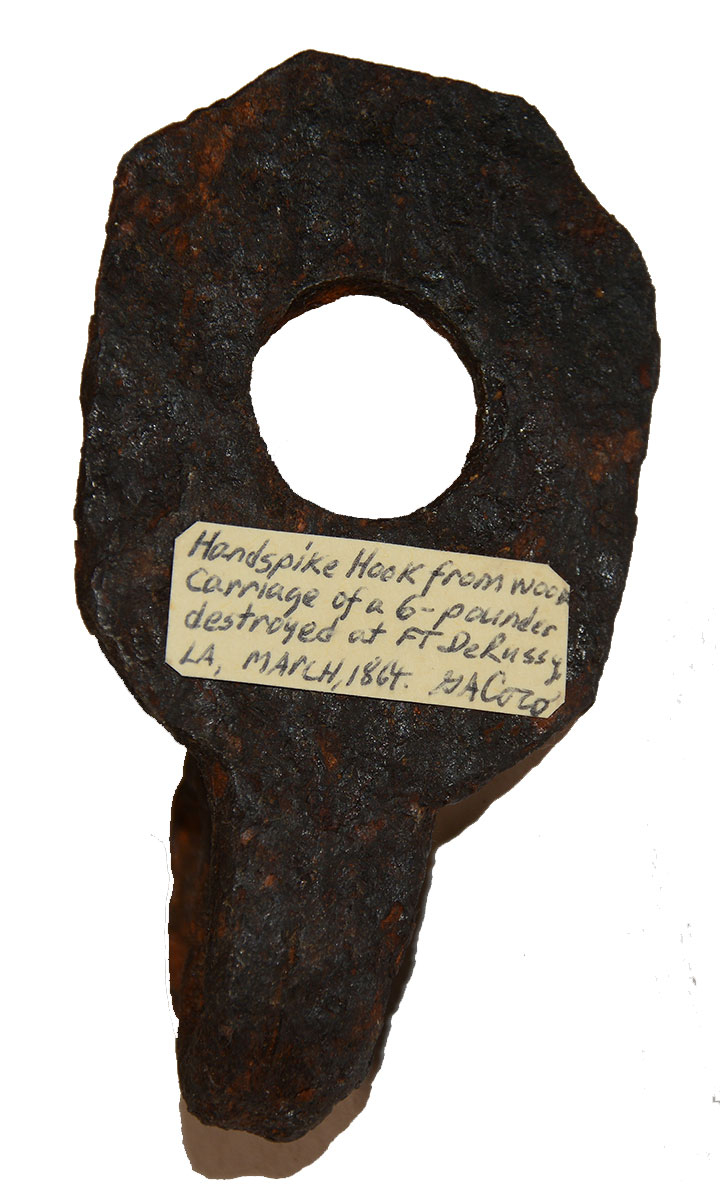 Handspike Hook from wood
Carriage of a 6-pounder
destroyed at FT DeRussy,
LA, MARCH, 1864. GACoco